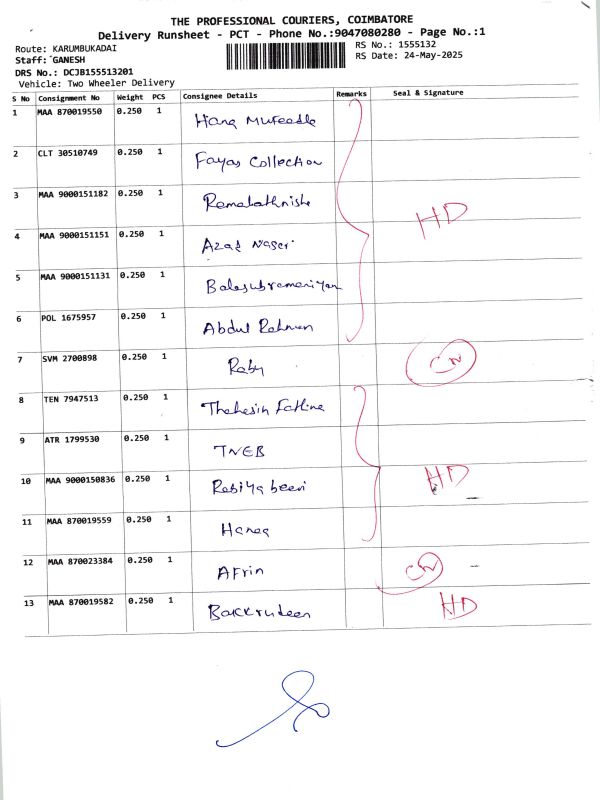 THE PROFESSIONAL COURIERS, COIMBATORE
Delivery Runsheet - PCT - Phone No.:9047080280 - Page No.:1
Route: KARUMBUKADAI
RS No.: 1555132
Staff: GANESH
RS Date: 24-May-2025
DRS No.: DCJB155513201
Vehicle: Two Wheeler Delivery
S No Consignment No Weight PCS Consignee Details Remarks Seal & Signature
1 MAA 870019550 0.250 1 Hana
2 CLT 30510749 0.250 1 Fayas Collection
3 MAA 9000151182 0.250 1
HD
4 MAA 9000151151 0.250 1 Azad Naser
5 MAA 9000151131 0.250 1 Balasubramaniyan
6 POL 1675957 0.250 1 Abdul Rahman
7 SVM 2700898 0.250 1 Raby CN
8 TEN 7947513 0.250 1
9 ATR 1799530 0.250 1 TNEB
10 MAA 9000150836 0.250 1 Rabiya beevi HD
11 MAA 870019559 0.250 1
12 MAA 870023384 0.250 1 Afrin CN
13 MAA 870019582 0.250 1 Bakkrudeen HD